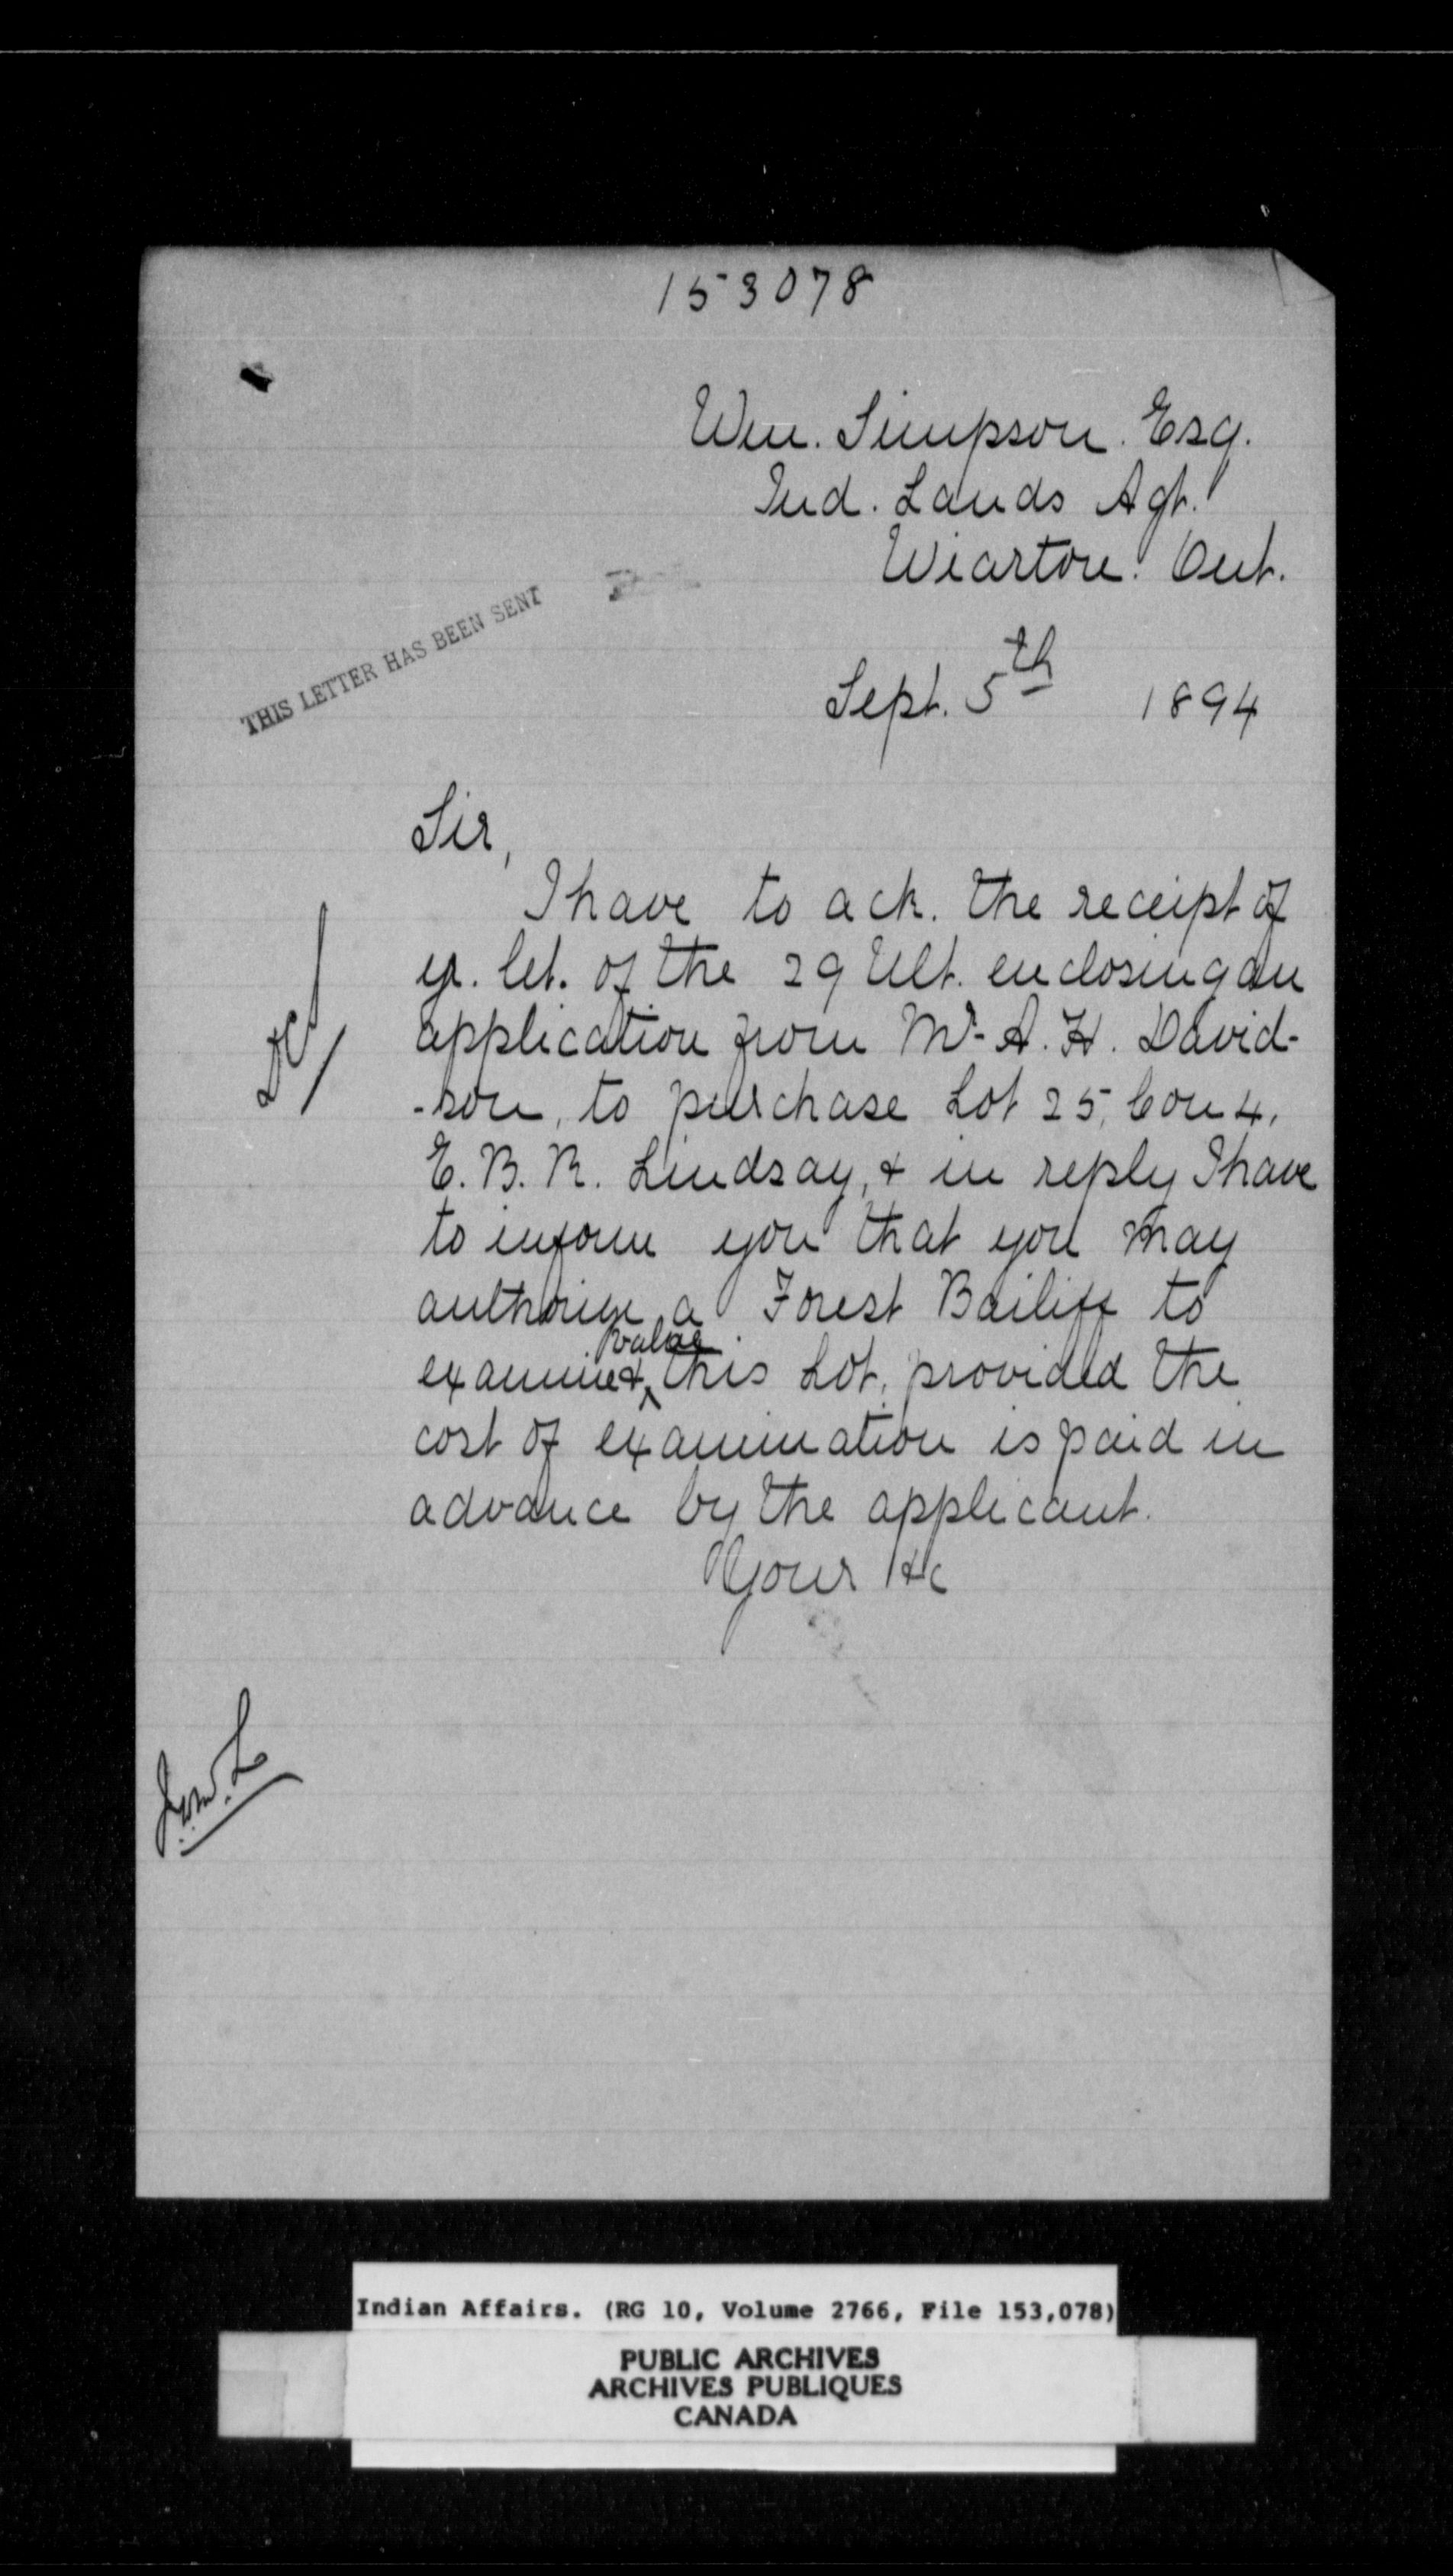 153078
Wm. Simpson. Esq.
Ind. Lands Agt.
Wiarton. Ont.
THIS LETTER HAS BEEN SENT
Sept. 5th 1894
Sir,
I have to ack. the receipt of
yr. let. of the 29 Ult. enclosing an
application from Mr. A. H. David-
-son, to purchase Lot 25, Con 4,
E. B. R. Lindsay, & in reply I have
to inform you that you may
authorize a Forest Bailiff to
examine & value this Lot, provided the
cost of examination is paid in
advance by the applicant.
Your &c
Indian Affairs. (RG 10, Volume 2766, File 153,078)
PUBLIC ARCHIVES
ARCHIVES PUBLIQUES
CANADA